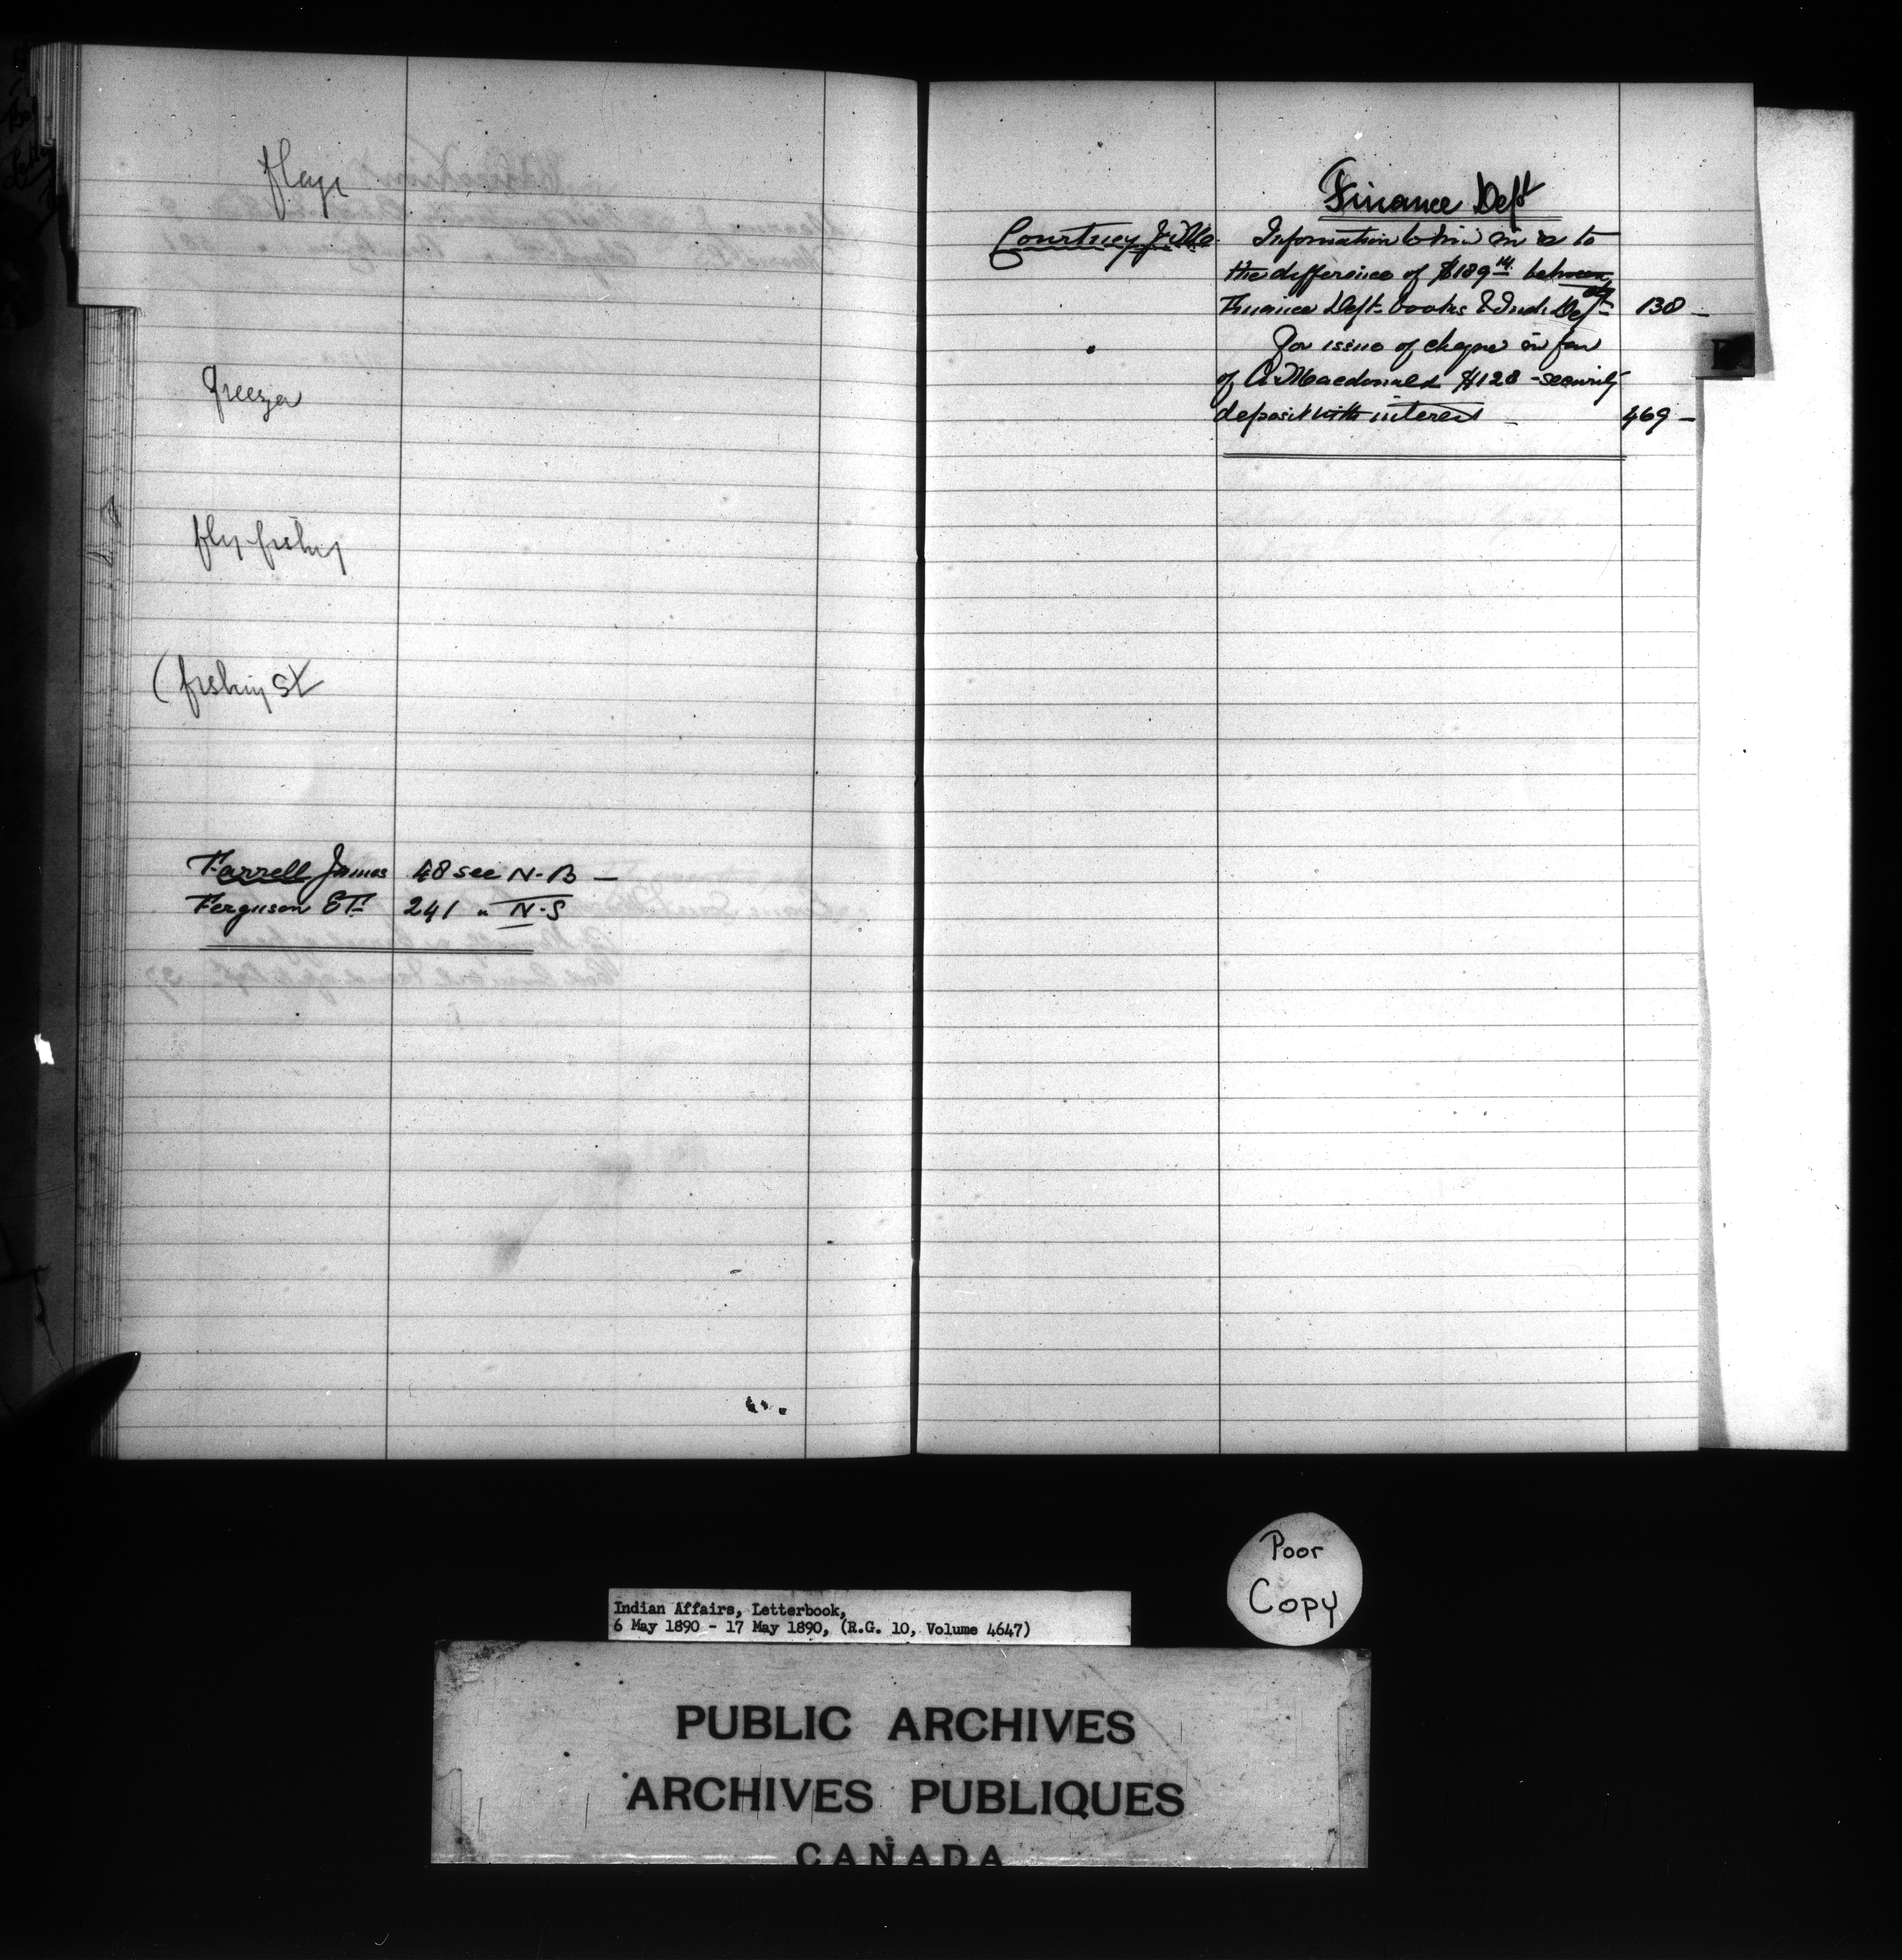 flags
freeza
fly-fishing
(fishing St
Farrell James 48 see N-B —
Ferguson ET 241 " N-S
Finance Dept
Courtney J. M. Information to him in re to
the difference of $189 14 between
Finance Dept. books & Ind. Dept 138 —
For issue of cheque in fav
of A. Macdonald $128 - security
deposit with interest 469 —
Poor
Copy
Indian Affairs, Letterbook,
6 May 1890 - 17 May 1890, (R.G. 10, Volume 4647)
PUBLIC ARCHIVES
ARCHIVES PUBLIQUES
CANADA